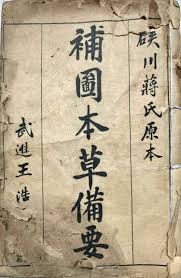 硤川蔣氏原本
補圖本草備要
武進王浩